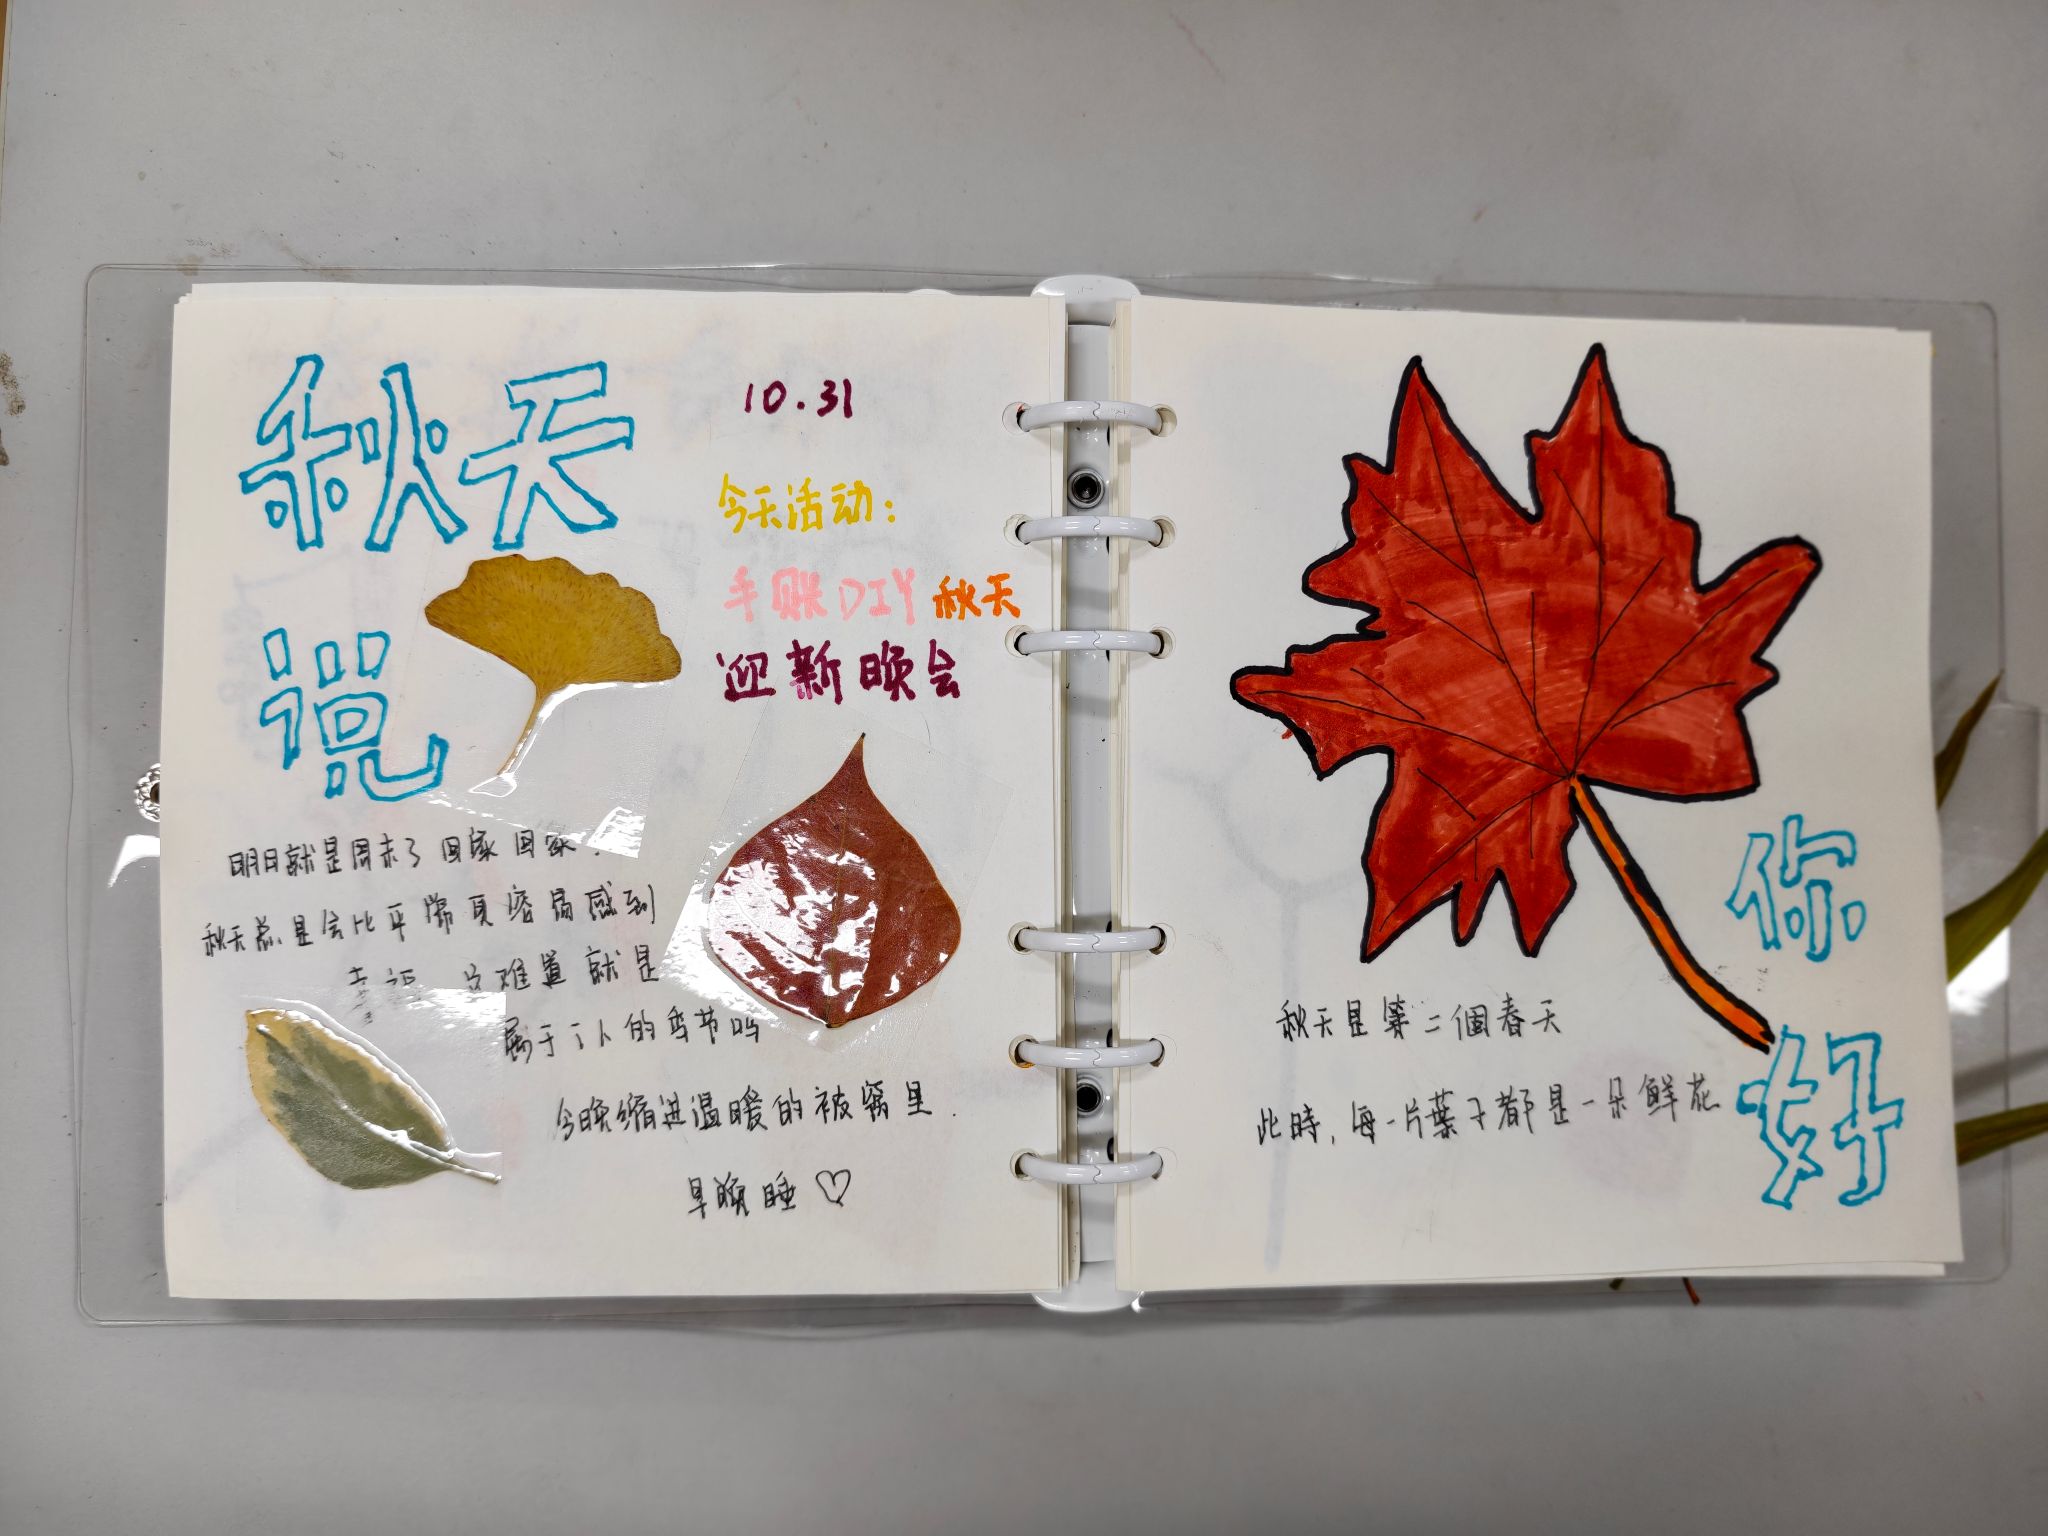 秋天
说
10.31
今天活动:
手账DIY 秋天
迎新晚会
明日就是周末了 回家 回家!
秋天总是会比平常更容易感到
幸福 这难道就是
属于 的季节吗
今晚缩进温暖的被窝里.
早晚睡♡
你
好
秋天是第二個春天
此時,每一片葉子都是一朵鮮花